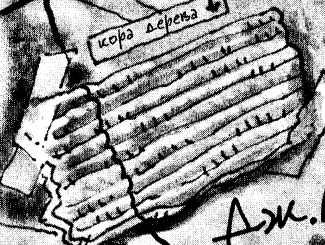 кора дерева
Дж.